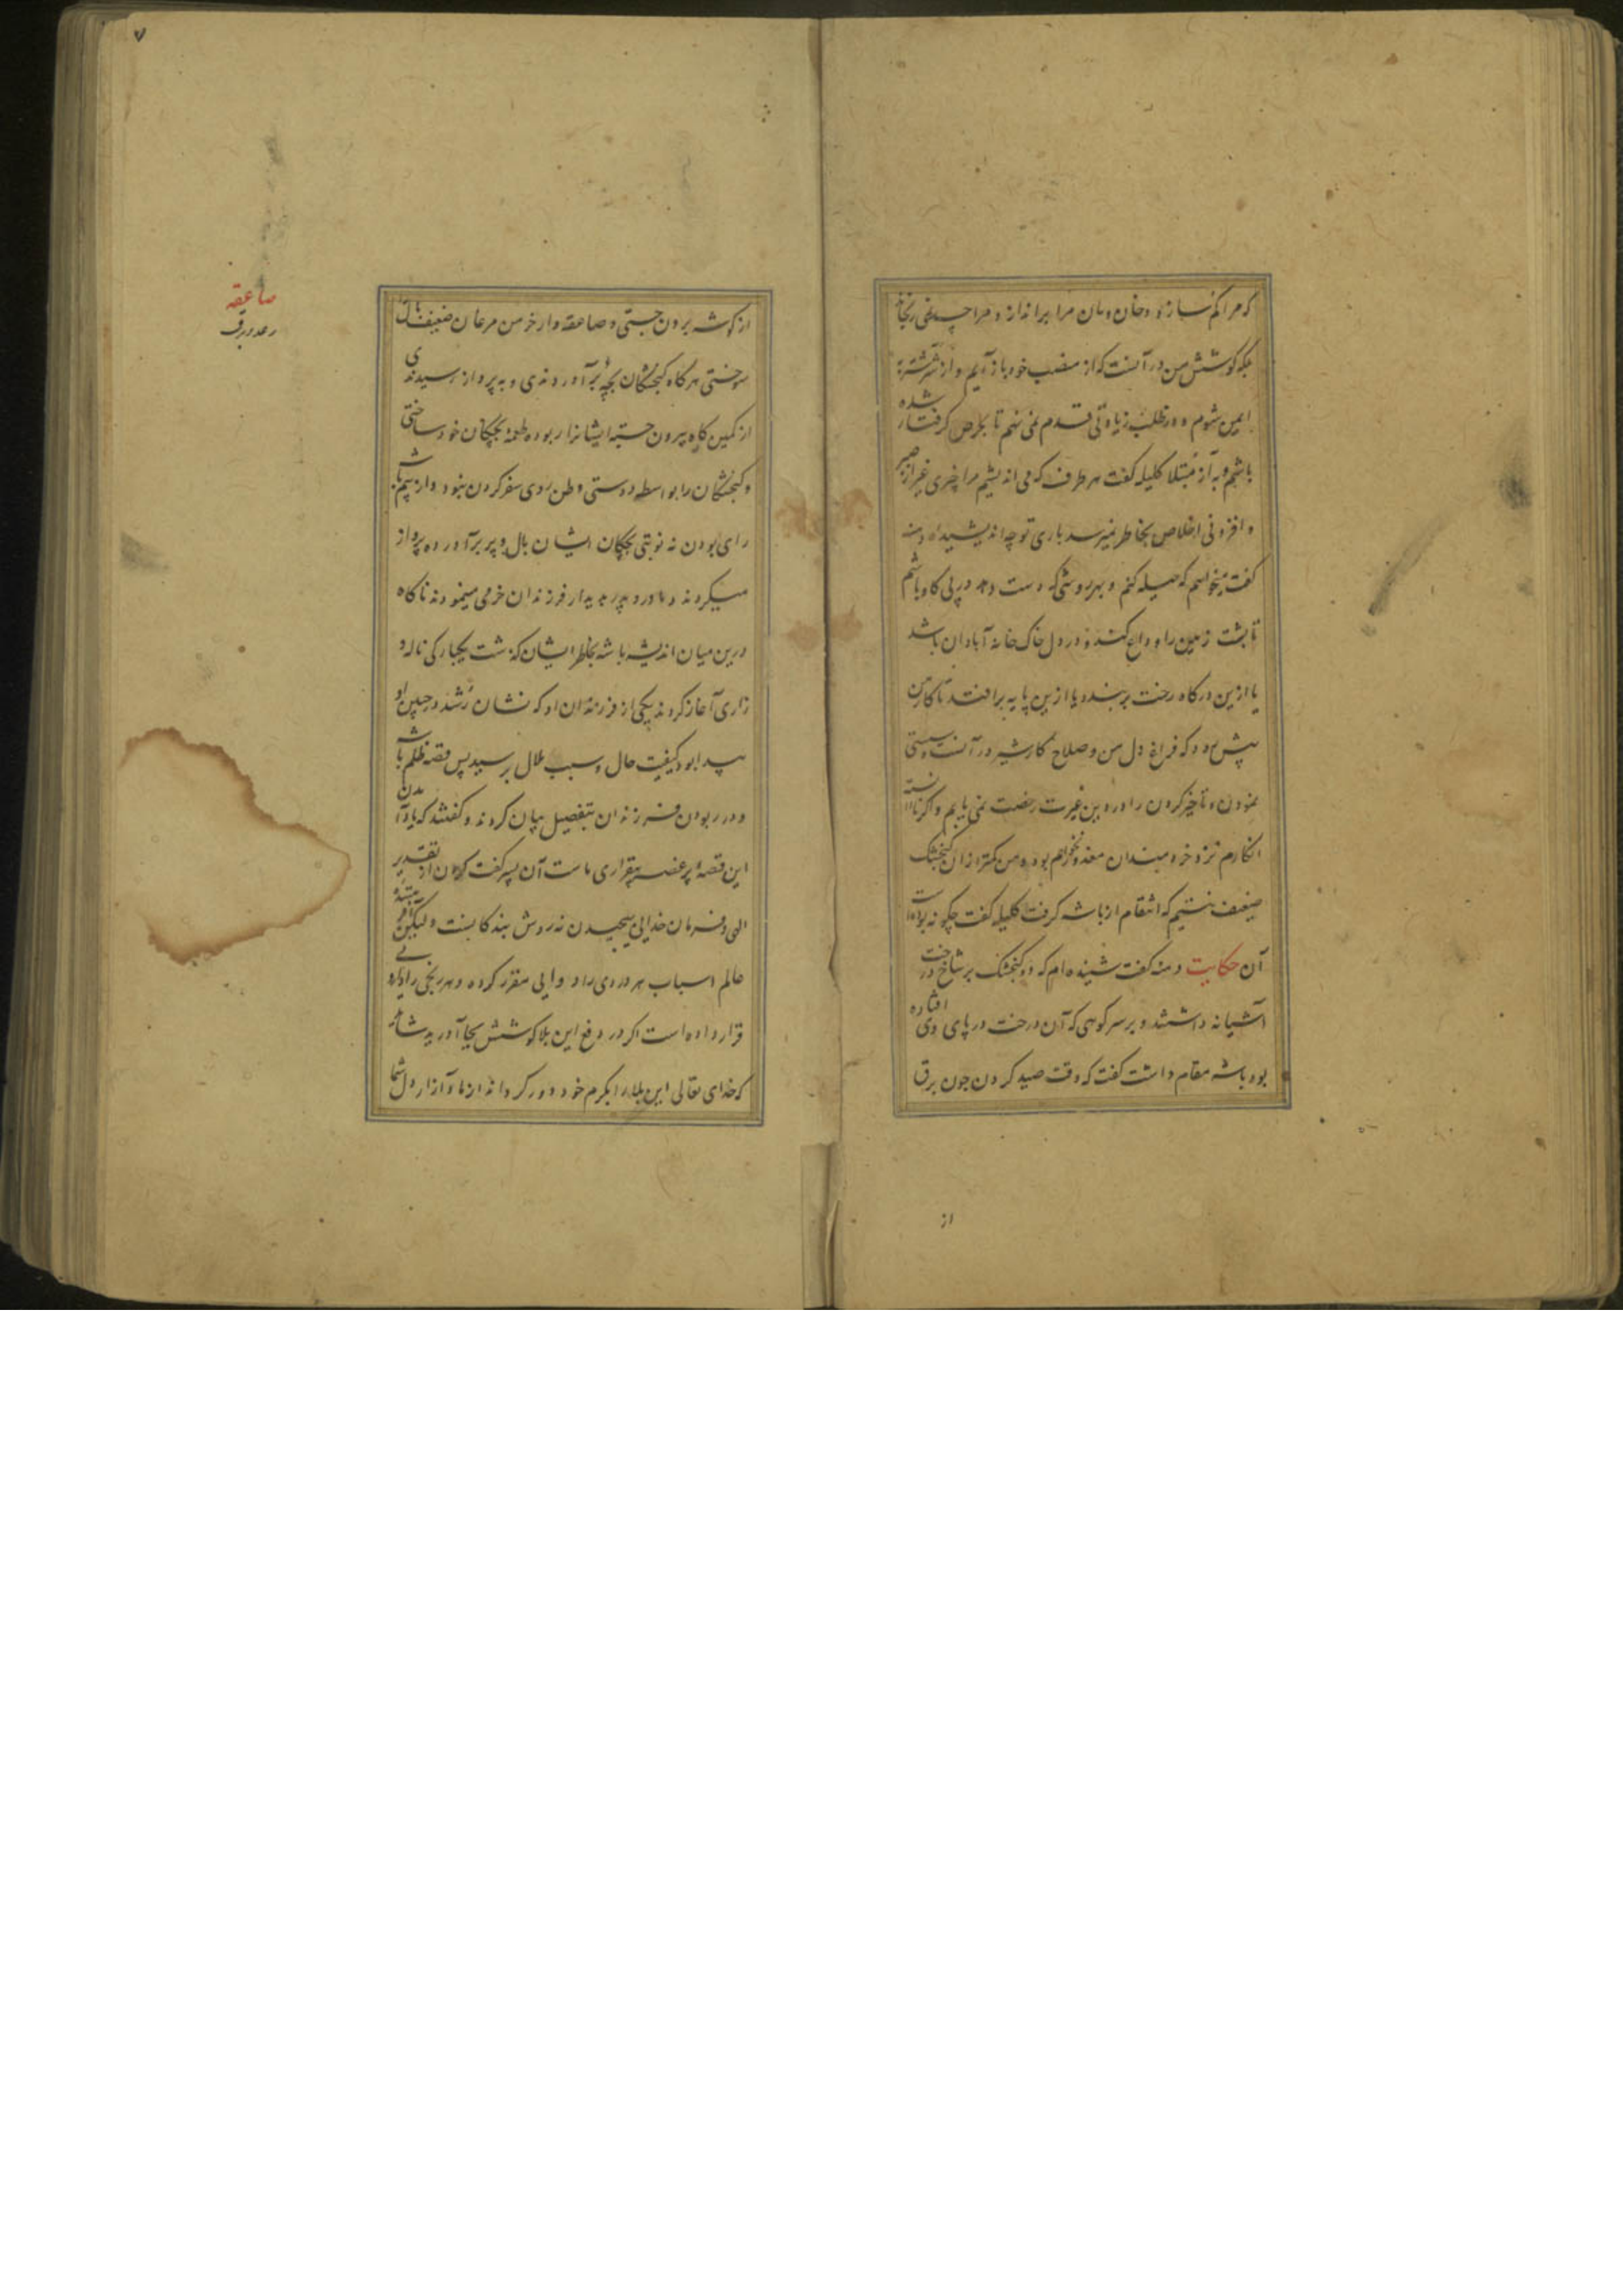 که مرا کم سازد و خان و مان مرا براندازد و مرا
بلکه کوشش من در آنست که از منصب خود باز آیم و از شر شتربه
ایمن شوم و در طلب زیادتی قدم نمی نهم تا بحرص گرفتار شده
باشم و به آز مبتلا کلیله گفت هر طرف که می اندیشیم مرا چیزی غیر از صبر
و افزونی اخلاص بخاطر نمیرسد باری تو چه اندیشیده دمنه
گفت میخواهم که حیله کنم و بهر روشی که دست دهد در پی گاو باشم
تا پشت زمین را وداع کند و در دل خاک خانه آبادان باشد
یا ازین درگاه رخت بربندد یا ازین پایه برافتد تا کار من
پیش رود که فراغ دل من و صلاح کار شیر در آنست و سستی
نمودن و تاخیر کردن را در دین غیرت رخصت نمی یابم و اگر نادانسته
انگارم نزد خردمندان معذور نخواهم بود و من کمتر از آن گنجشک
ضعیف نیستم که انتقام از باشه گرفت کلیله گفت چگونه بوده است
آن حکایت دمنه گفت شنیده ام که دو گنجشک بر شاخ درخت
آشیانه داشتند و بر سر کوهی که آن درخت در پای وی افتاده
بود باشه مقام داشت گفت که وقت صید کردن چون برق
از
صاعقه
رعد و برق
از گوشه برون جستی و صاعقه وار خرمن مرغان ضعیف بال
سوختی هر گاه گنجشکان بچه بر آوردندی و به پرواز رسیدندی
از کمین گاه بیرون جسته ایشانرا ربوده طعمه بچگان خود ساختی
و گنجشکان را بواسطه دوستی وطن روی سفر کردن نبود و از بیم باشه
رای بودن نه نوبتی بچگان ایشان بال و پر برآورده پرواز
میکردند و مادر و پدر به دیدار فرزندان خرمی مینمودند ناگاه
درین میان اندیشه باشه بخاطر ایشان گذشت یکبارگی ناله و
زاری آغاز کردند یکی از فرزندان او که نشان رشد در جبین او
پیدا بود کیفیت حال و سبب ملال پرسید پس قصه ظلم باشه
و در ربودن فرزندان بتفصیل بیان کردند و گفتند که
این قصه پر غصه بیقراری ماست آن پسر گفت گردن از تقدیر
الهی و فرمان خدایی پیچیدن نه روش بندگانست ولیکن
عالم اسباب هر دردی را دوایی مقرر کرده و هر رنجی را
قرار داده است اگر در دفع این بلا کوشش بجا آورید شاید
که خدای تعالی این بلا را بکرم خود دور گرداند از ما و آزار دل شما